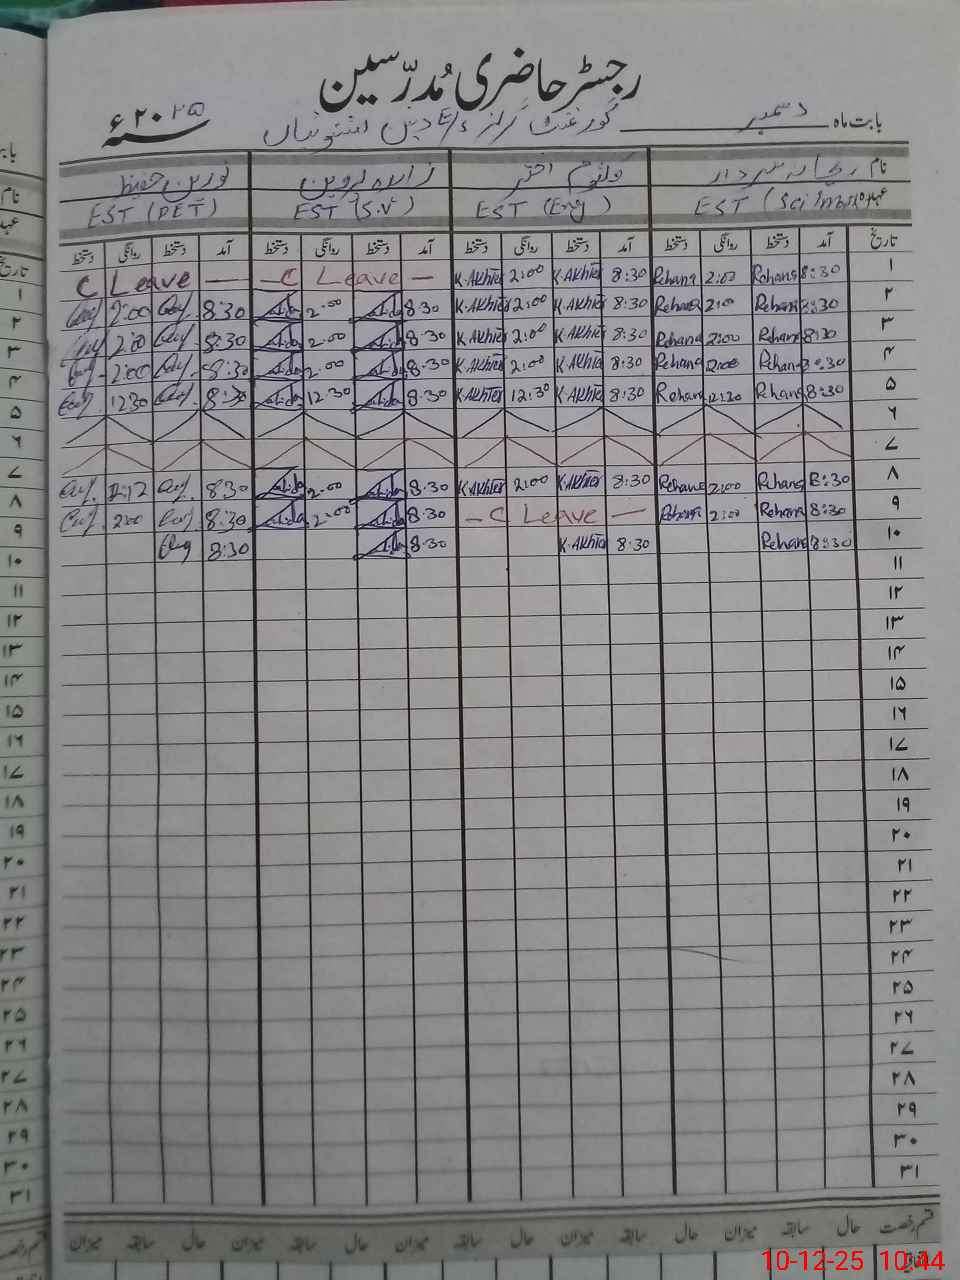 رجسٹر حاضری مُدرّسین
بابت ماہ دسمبر گورنمنٹ گرلز سنہ ۲۰۲۵ء
نام ریحانہ سردار کلثوم اختر زاہدہ پروین نورین حفیظ
عہدہ EST (Sci EST (Eng) EST (S.V) EST (PET)
تاریخ آمد دستخط روانگی دستخط آمد دستخط روانگی دستخط آمد دستخط روانگی دستخط آمد دستخط روانگی دستخط
۱ 8:30 Rehana 2:00 Rehana 8:30 K.Akhter 2:00 K.Akhter — C Leave — C Leave —
۲ 8:30 Rehana 2:00 Rehana 8:30 K.Akhter 2:00 K.Akhter 8:30 2:00 8:30 2:00
۳ 8:30 Rehana 2:00 Rehana 8:30 K.Akhter 2:00 K.Akhter 8:30 2:00 8:30 2:00
۴ 8:30 Rehana 2:00 Rehana 8:30 K.Akhter 2:00 K.Akhter 8:30 2:00 8:30 2:00
۵ 8:30 Rehana 12:30 Rehana 8:30 K.Akhter 12:30 K.Akhter 8:30 12:30 8:30 1230
۶
۷
۸ 8:30 Rehana 2:00 Rehana 8:30 K.Akhter 2:00 K.Akhter 8:30 2:00 8:30
۹ 8:30 Rehana 2:00 Rehana — C Leave — 8:30 2:00 8:30 2:00
۱۰ 8:30 Rehana 8:30 K.Akhter 8:30 8:30
۱۱
۱۲
۱۳
۱۴
۱۵
۱۶
۱۷
۱۸
۱۹
۲۰
۲۱
۲۲
۲۳
۲۴
۲۵
۲۶
۲۷
۲۸
۲۹
۳۰
۳۱
قسم رخصت حال سابقہ میزان حال سابقہ میزان حال سابقہ میزان حال سابقہ میزان
10-12-25 10:44